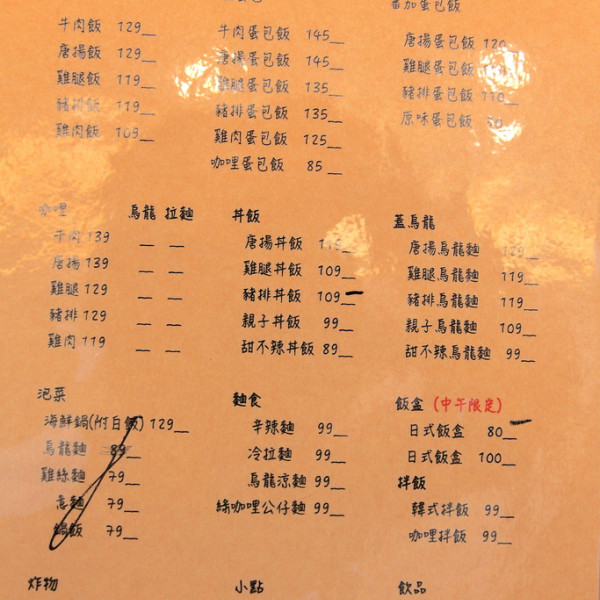 牛肉飯 129
唐揚飯 129
雞腿飯 119
豬排飯 119
雞肉飯 109
牛肉蛋包飯 145
唐揚蛋包飯 145
雞腿蛋包飯 135
豬排蛋包飯 135
雞肉蛋包飯 125
咖哩蛋包飯 85
番茄蛋包飯
唐揚蛋包飯 120
雞腿蛋包飯
豬排蛋包飯 110
原味蛋包飯
咖哩 烏龍 拉麵
牛肉 139
唐揚 139
雞腿 129
豬排 129
雞肉 119
丼飯
唐揚丼飯
雞腿丼飯 109
豬排丼飯 109
親子丼飯 99
甜不辣丼飯 89
蓋烏龍
唐揚烏龍麵 129
雞腿烏龍麵 119
豬排烏龍麵 119
親子烏龍麵 109
甜不辣烏龍麵 99
泡菜
海鮮鍋(附白飯) 129
烏龍麵 89
雞絲麵 79
意麵 79
鍋飯 79
麵食
辛辣麵 99
冷拉麵 99
烏龍涼麵 99
綠咖哩公仔麵 99
飯盒 (中午限定)
日式飯盒 80
日式飯盒 100
拌飯
韓式拌飯 99
咖哩拌飯 99
炸物
小點
飲品